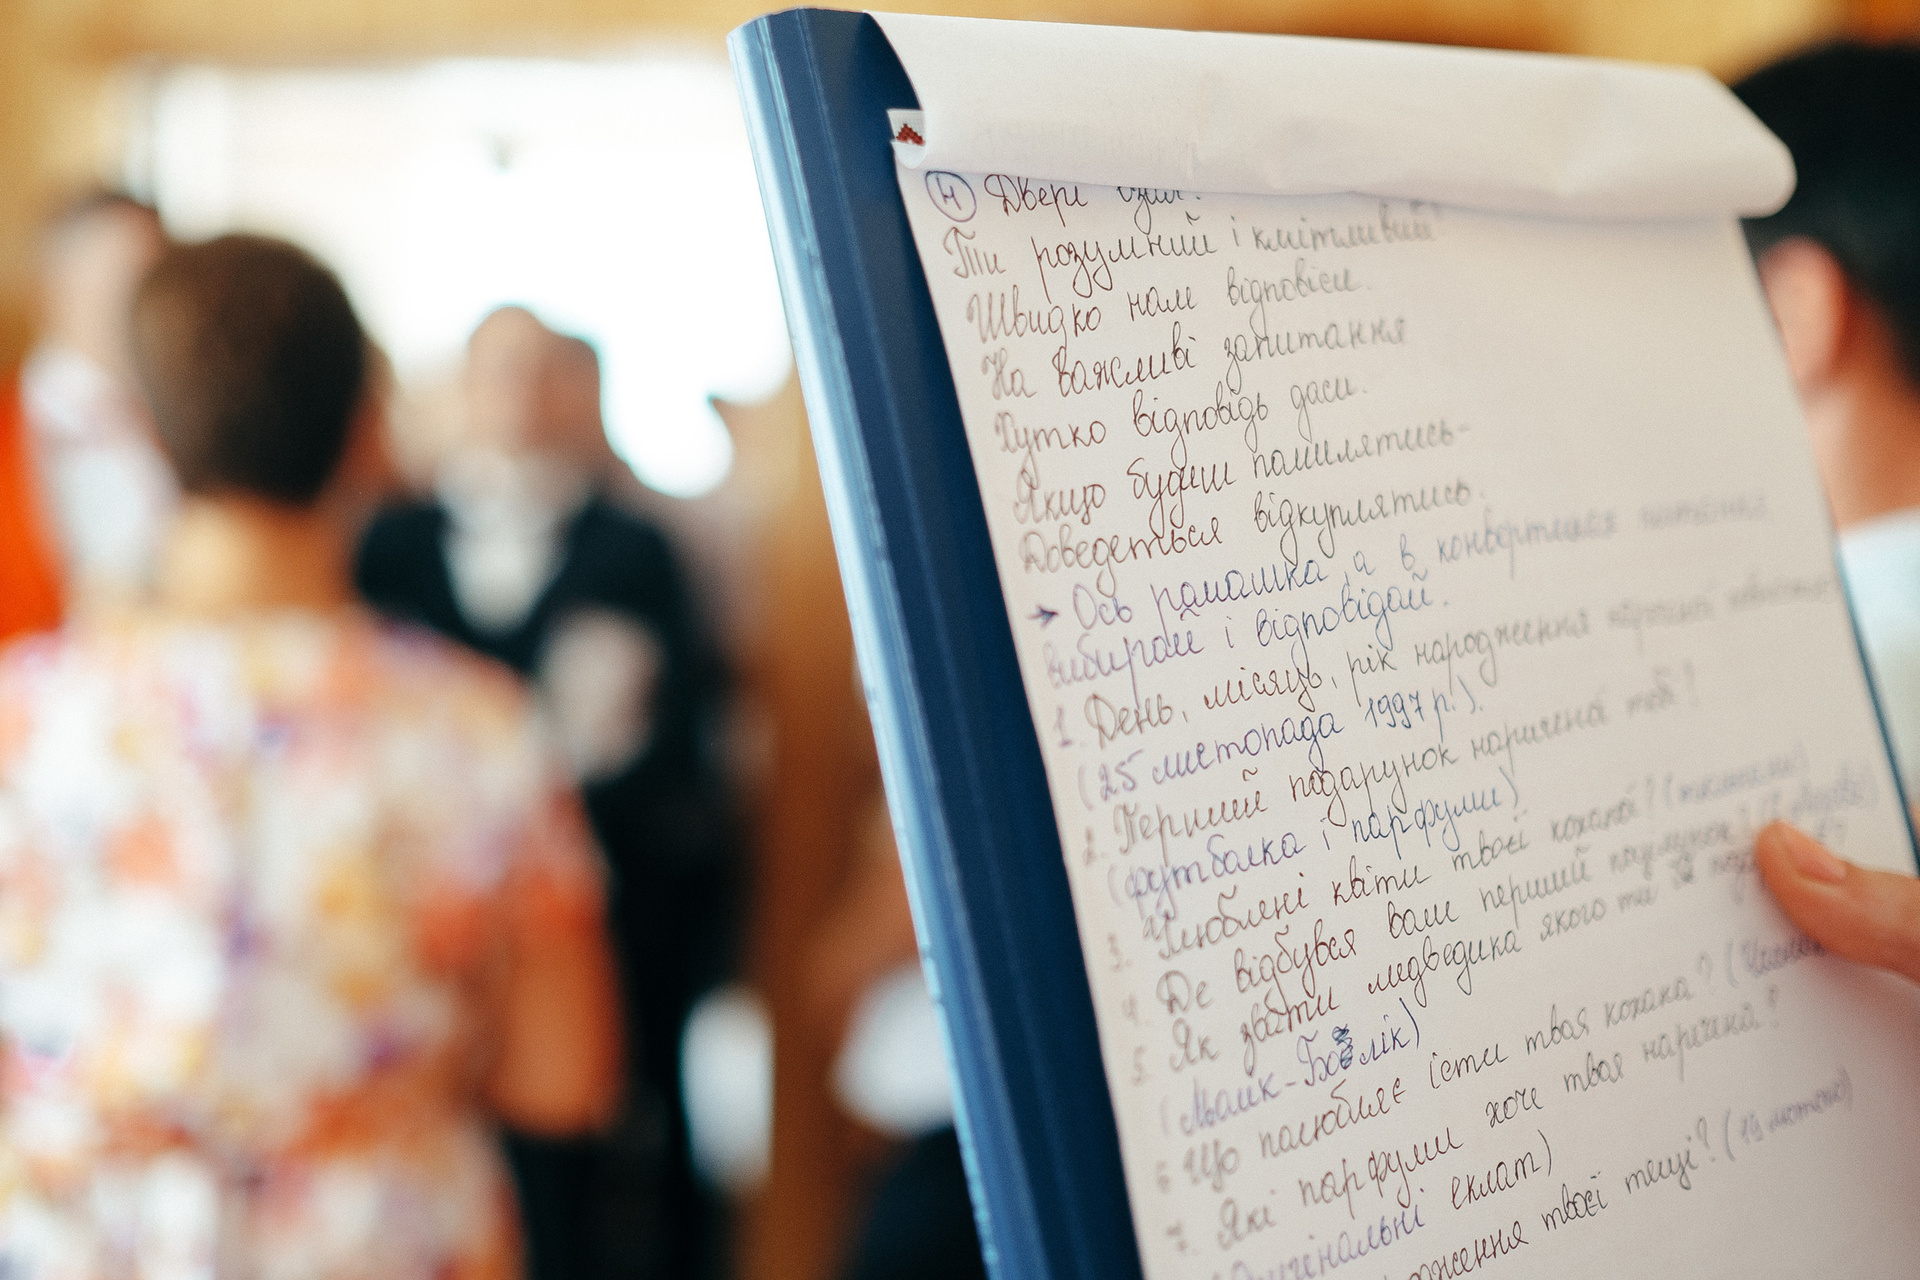 4 Двері
Ти розумний і кмітливий
Швидко нам відповіси.
На важливі запитання
Хутко відповідь даси.
Якщо будеш помилятись-
Доведеться відкуплятись.
→ Ось ромашка, а в конвертиках питання
вибирай і відповідай.
1. День, місяць, рік народження
(25 листопада 1997 р.).
2. Перший подарунок нареченої тобі!
(футболка і парфуми)
3. Улюблені квіти твоєї коханої?
4. Де відбувся ваш перший поцілунок?
5. Як звати медведика якого ти
(Майк-Болік)
6 Що полюбляє їсти твоя кохана?
7. Які парфуми хоче твоя наречена?
еклат)
твоєї тещі? (19 лютого)